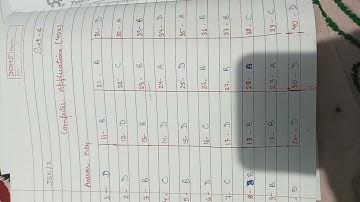 Set-4
Computer Application (403)
Answer Key
1 - D 11 - B 21. B 31. D
2 - D 12 - D 22 - C 32 - A
3 - B 13 - B 23 - B 33 - B
4 - C 14 - D 24 - A 34 - D
5 - B 15 - D 25 - D 35 - A
6 - D 16 - C 26 - B 36 - B
7 - C 17 - D 27 - B 37 - B
8 - B 18 - B 28 - B 38 - C
9 - B 19 - B 29 - A 39 - C
D 20 - D 30 - D 40 - D